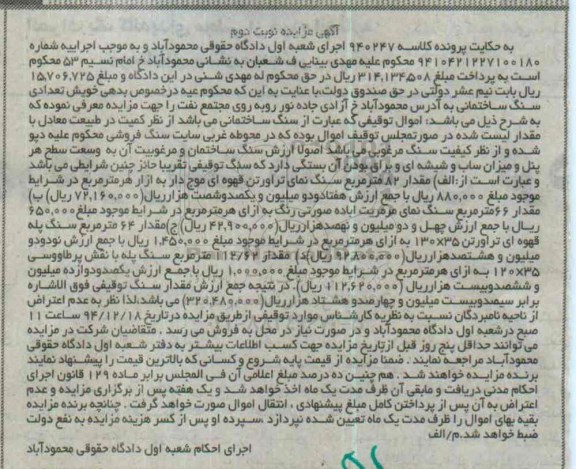 آگهی مزایده نوبت دوم
به حکایت پرونده کلاسه ۹۴۰۲۴۷ اجرای شعبه اول دادگاه حقوقی محمودآباد و به موجب اجراییه شماره
۹۴۱۰۴۲۱۲۲۷۱۰۰۱۸۰ محکوم علیه مهدی بینایی ف شعبان به نشانی محمودآباد خ امام نسیم ۵۳ محکوم
است به پرداخت مبلغ ۳۱۴,۱۳۴,۵۰۸ ریال در حق محکوم له مهدی شنی در این دادگاه و مبلغ ۱۵,۷۰۶,۷۲۵
ریال بابت نیم عشر دولتی در حق صندوق دولت،با عنایت به این که محکوم علیه درخصوص بدهی خویش تعدادی
سنگ ساختمانی به آدرس محمودآباد خ آزادی جاده نور روبه روی مجتمع نفت را جهت مزایده معرفی نموده که
به شرح ذیل می باشد: اموال توقیفی که عبارت از سنگ ساختمانی می باشد از نظر کمیت در طبیعت معادل با
مقدار لیست شده در صورتمجلس توقیف اموال بوده که در محوطه غربی سایت سنگ فروشی محکوم علیه دپو
شده و از نظر کیفیت سنگ مرغوب می باشد اصولا ارزش سنگ ساختمان و مرغوبیت آن به وسعت سطح هر
پنل و میزان ساب و شیشه ای و براق بودن آن بستگی دارد که سنگ توقیفی تقریبا حائز چنین شرایطی می باشد
و عبارت است از:الف) مقدار ۸۲ مترمربع سنگ نمای تراورتن قهوه ای موج دار به ازار هرمترمربع در شرایط
موجود مبلغ ۸۸۰,۰۰۰ ریال با جمع ارزش هفتادودو میلیون و یکصدوشصت هزارریال(۷۲,۱۶۰,۰۰۰ریال) ب)
مقدار ۶۶مترمربع سنگ نمای مرمریت آباده صورتی رنگ به ازای هرمترمربع در شرایط موجود مبلغ ۶۵۰,۰۰۰
ریال با جمع ارزش چهل و دو میلیون و نهصدهزارریال(۴۲,۹۰۰,۰۰۰ ریال) ج)مقدار ۶۴ مترمربع سنگ پله
قهوه ای تراورتن ۳۵×۱۳۰ به ازای هرمترمربع در شرایط موجود مبلغ ۱,۴۵۰,۰۰۰ ریال با جمع ارزش نودودو
میلیون و هشتصدهزارریال(۹۲,۸۰۰,۰۰۰ ریال) د) مقدار ۱۱۲/۶۲ مترمربع سنگ پله با نقش پرطاووسی
۳۵×۱۲۰ به ازای هرمترمربع در شرایط موجود مبلغ ۱,۰۰۰,۰۰۰ ریال با جمع ارزش یکصدودوازده میلیون
و ششصدوبیست هزارریال (۱۱۲,۶۲۰,۰۰۰ ریال). در نتیجه جمع ارزش مقدار سنگ توقیفی فوق الاشاره
برابر سیصدوبیست میلیون و چهارصدو هشتاد هزارریال(۳۲۰,۴۸۰,۰۰۰) می باشد،لذا نظر به عدم اعتراض
از ناحیه نامبردگان نسبت به نظریه کارشناس موارد توقیفی از طریق مزایده درتاریخ ۹۴/۱۲/۱۸ ساعت ۱۱
صبح درشعبه اول دادگاه محمودآباد و در صورت نیاز در محل به فروش می رسد . متقاضیان شرکت در مزایده
می توانند حداقل پنج روز قبل از تاریخ مزایده جهت کسب اطلاعات بیشتر به دفتر شعبه اول دادگاه حقوقی
محمودآباد مراجعه نمایند . ضمنا مزایده از قیمت پایه شروع و کسانی که بالاترین قیمت را پیشنهاد نمایند
برنده مزایده خواهند شد . هم چنین ده درصد مبلغ اعلامی آن فی المجلس برابر ماده ۱۲۹ قانون اجرای
احکام مدنی دریافت و مابقی آن ظرف مدت یک ماه اخذ خواهد شد و یک هفته پس از برگزاری مزایده و عدم
اعتراض به آن پس از پرداختن کامل مبلغ پیشنهادی ، انتقال اموال صورت خواهد گرفت . چنانچه برنده مزایده
بقیه بهای اموال را ظرف مدت یک ماه تعیین شده نپردازد ،سپرده او پس از کسر هزینه مزایده به نفع دولت
ضبط خواهد شد.م/الف
اجرای احکام شعبه اول دادگاه حقوقی محمودآباد